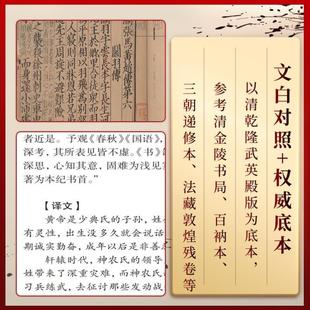 關張馬黃趙傳第六
關羽傳
之襲殺徐州刺史車
而身還小沛
文白对照+权威底本
以清乾隆武英殿版为底本，
参考清金陵书局、百衲本、
三朝递修本、法藏敦煌残卷等
者近是。予观《春秋》《国语》，
深考，其所表见皆不虚。《书》
深思，心知其意，固难为浅见
著为本纪书首。”
【译文】
黄帝是少典氏的子孙，姓
有灵性，出生没多久就会说话
期诚实勤奋，成年以后是非
轩辕时代，神农氏的领导
姓带来了深重灾难，而神农氏
习兵练武，去征讨那些发动战